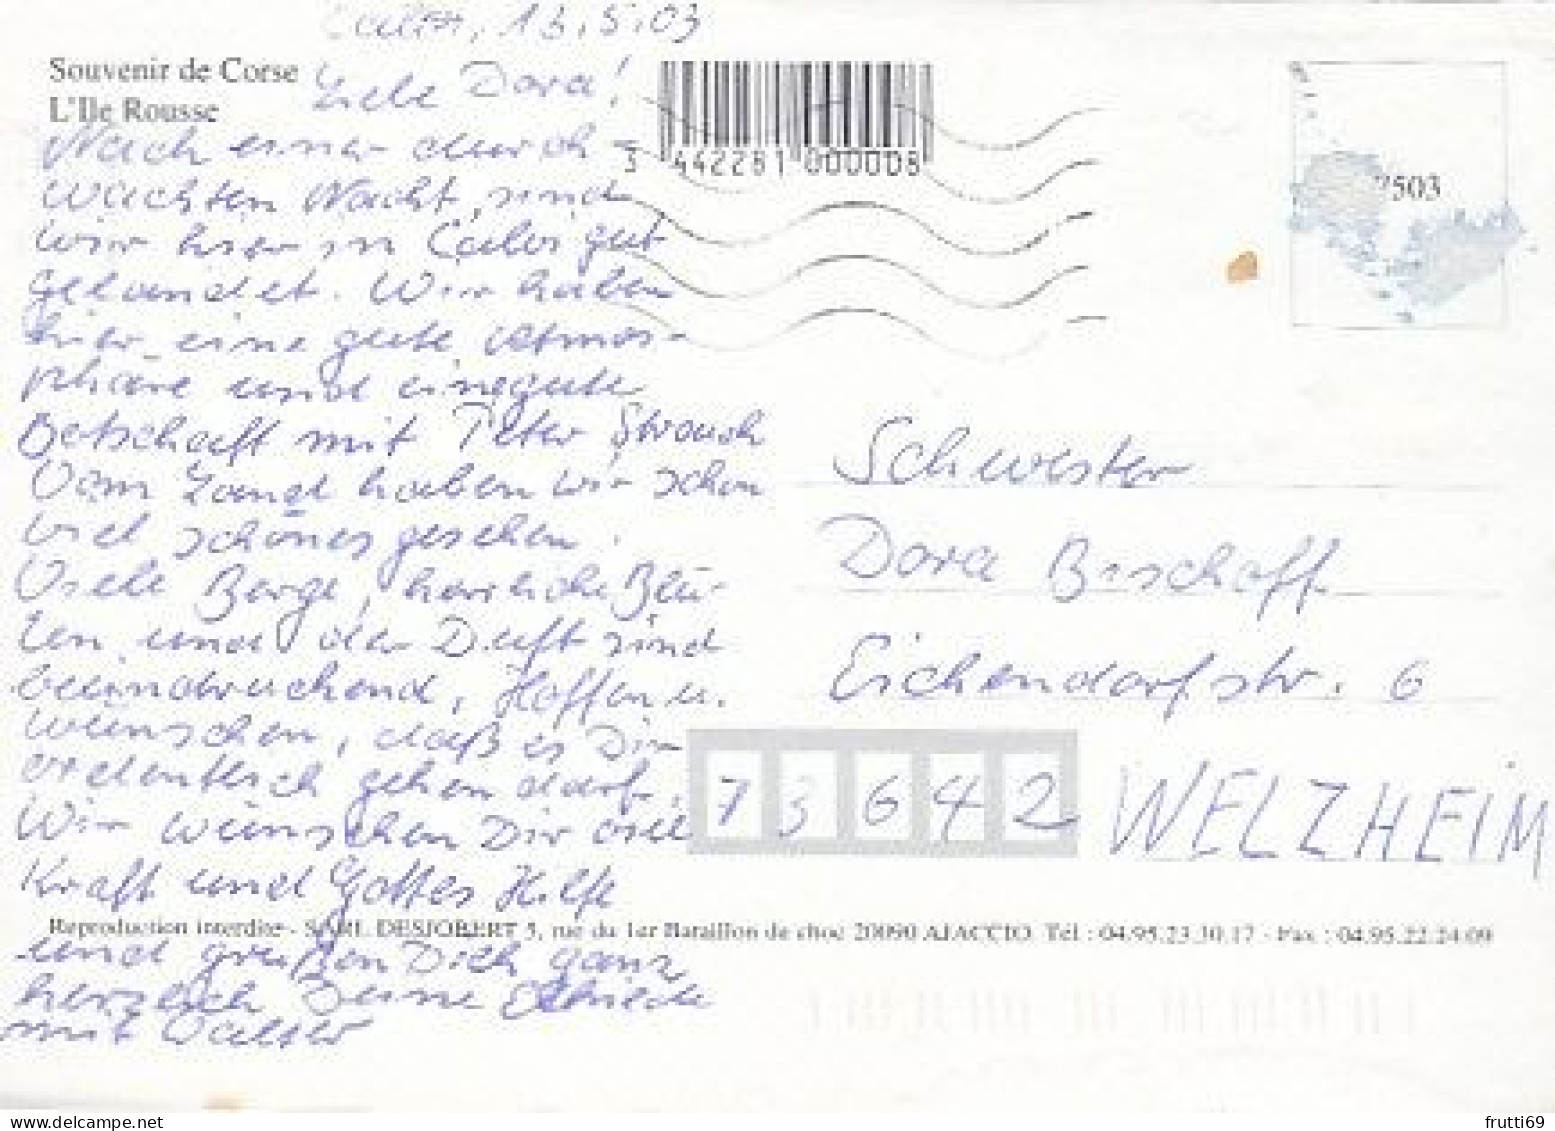 Calvi, 13.5.03
Souvenir de Corse
L'Ile Rousse
Liebe Dora!
Nach einer durch-
wachten Nacht, sind
wir hier in Calvi gut
gelandet. Wir haben
hier eine gute Atmos-
phäre und eine gute
Botschaft mit Peter Strauch
Vom Land haben wir schon
viel schönes gesehen.
Viele Berge, herrliche Blü-
ten und der Duft sind
beeindruckend, Hoffen u.
wünschen, daß es Dir
ordentlich gehen darf.
Wir wünschen Dir viel
Kraft und Gottes Hilfe
und grüßen Dich ganz
herzlich Deine
mit Walter
3 442281 000008
7503
Schwester
Dora Bischoff
Eichendorfstr. 6
73642 WELZHEIM
Reproduction interdite - SARL DESJOBERT 5, rue du 1er Bataillon de choc 20090 AJACCIO. Tél : 04.95.23.30.17 - Fax : 04.95.22.24.09
frutti69